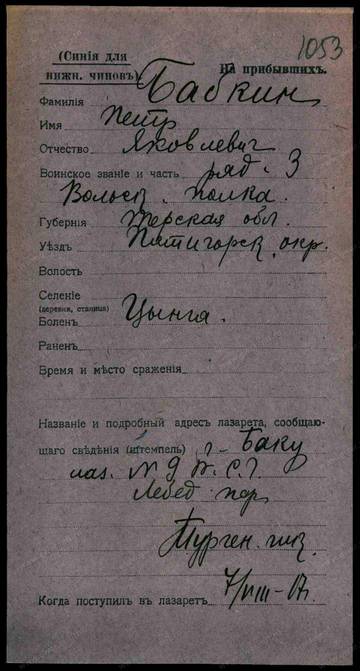 1053
(Синія для
нижн. чиновъ) На прибывшихъ.
Фамилія Бабкин
Имя Петр
Отчество Яковлевич
Воинское званіе и часть ряд. 3
Вольск. полка.
Губернія Терская обл.
Уѣздъ Пятигорск. окр.
Волость
Селеніе
(деревня, станица)
Боленъ Цынга.
Раненъ
Время и мѣсто сраженія
Названіе и подробный адресъ лазарета, сообщаю-
щаго свѣдѣнія (штемпель) г. Баку
лаз. № 9 В. С. Г.
Лебед. пер
Турген.
Когда поступилъ въ лазаретъ 7/VIII-17г.